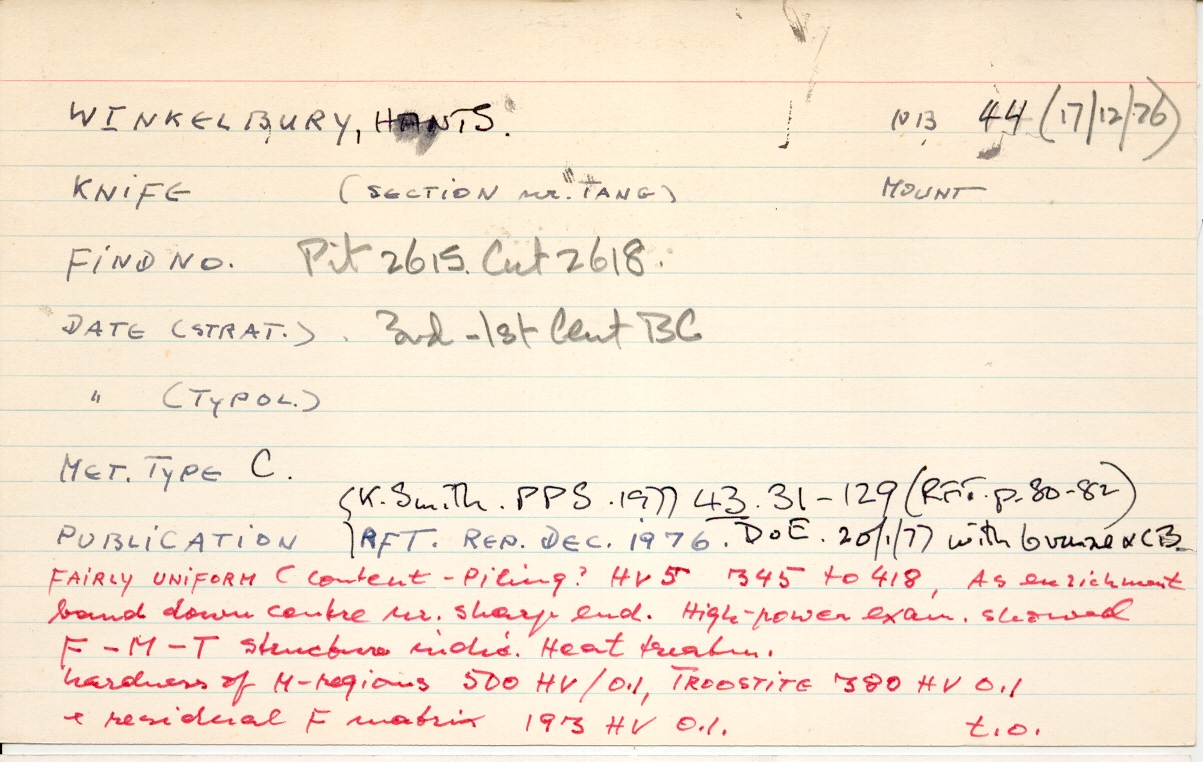 WINKELBURY, HANTS. NB 44 (17/12/76)
KNIFE (SECTION nr. TANG) MOUNT
FIND NO. Pit 2615. Cut 2618.
DATE (STRAT.). 3rd - 1st Cent BC
" (TYPOL.)
MET. TYPE C.
(K. Smith. PPS. 1977 43. 31-129 (RFT. p. 80-82)
PUBLICATION RFT. REP. DEC. 1976. DoE. 20/1/77 with bronze & CB
FAIRLY UNIFORM C content - Piling? HV5 345 to 418, As enrichment
band down centre nr. sharp end. High-power exam. showed
F-M-T structure indic. Heat treatm.
hardness of M-regions 500 HV/0.1, TROOSTITE 380 HV 0.1
+ residual F matrix 193 HV 0.1. t.o.